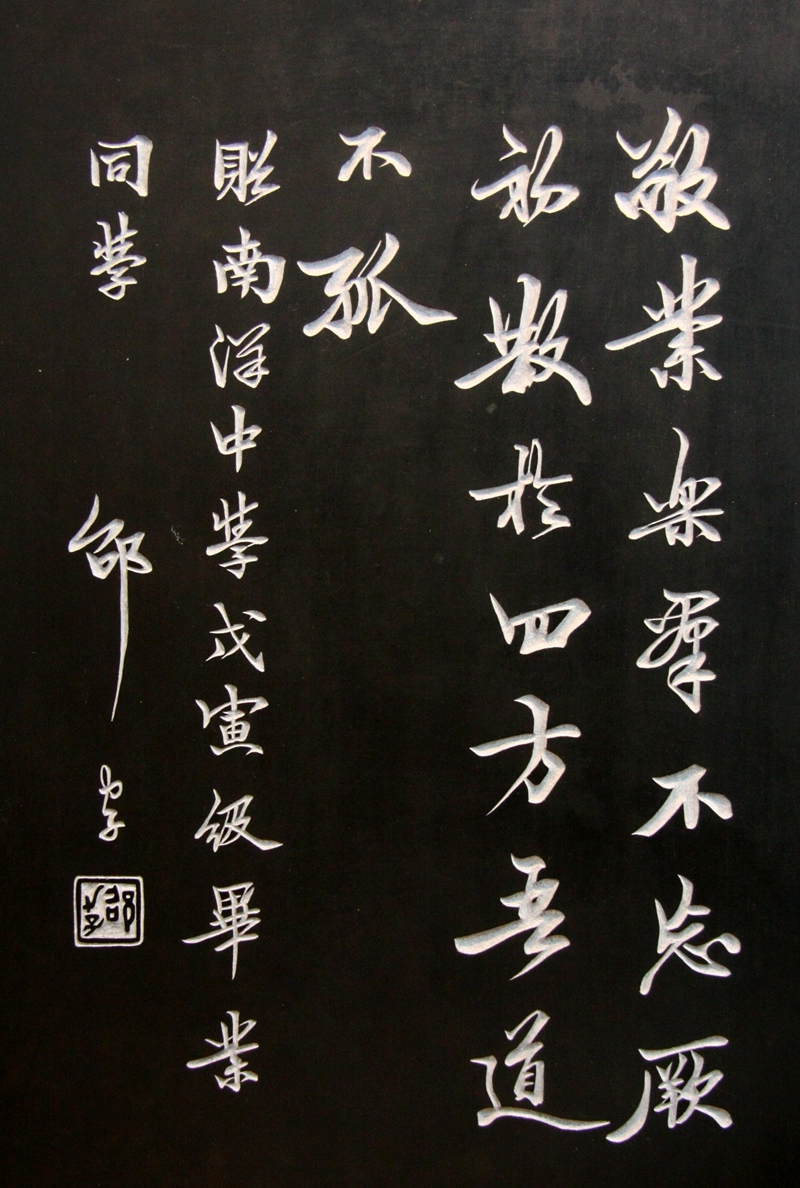 敬業樂羣不忘厥
初散於四方吾道
不孤
貽南洋中學戊寅級畢業
同學
邵